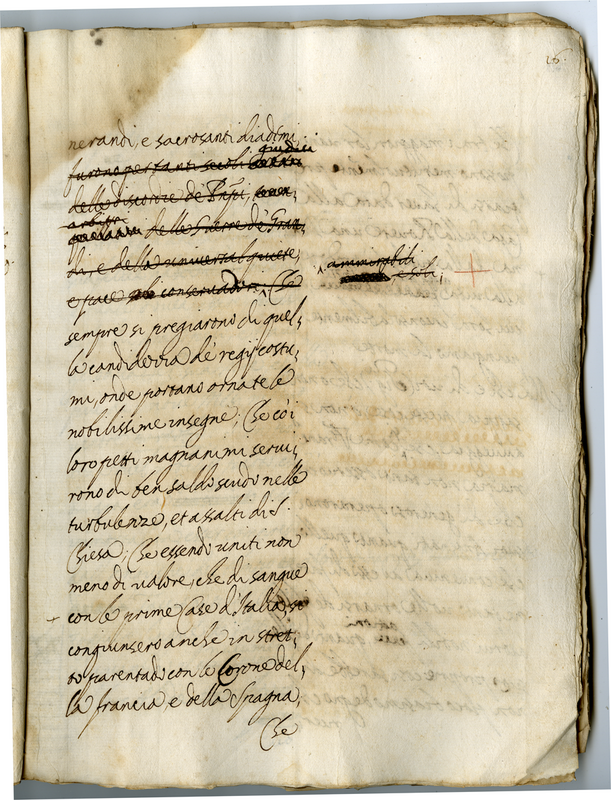 26.
nerandi, e sacrosanti diademi
giudici
furono per tanti secoli
delle discordie de Prñpi,
arbitri
delle Guerre de Gran,
di, e della universal quiete,
e pace conservadori; Che
ammirabili
, e soli;
sempre si pregiarono di quel,
la candidezza de' regij costu,
mi, onde portano ornate le
nobilissime insegne; Che co' i
loro petti magnanimi servi,
rono di ben saldo scudo nelle
turbulenze, et assalti di S.
Chiesa; Che essendo uniti non
meno di valore, che di sangue
con le prime Case d'Italia, si
congiunsero anche in stret,
to parentado con le Corone del,
la francia e della Spagna;
Che